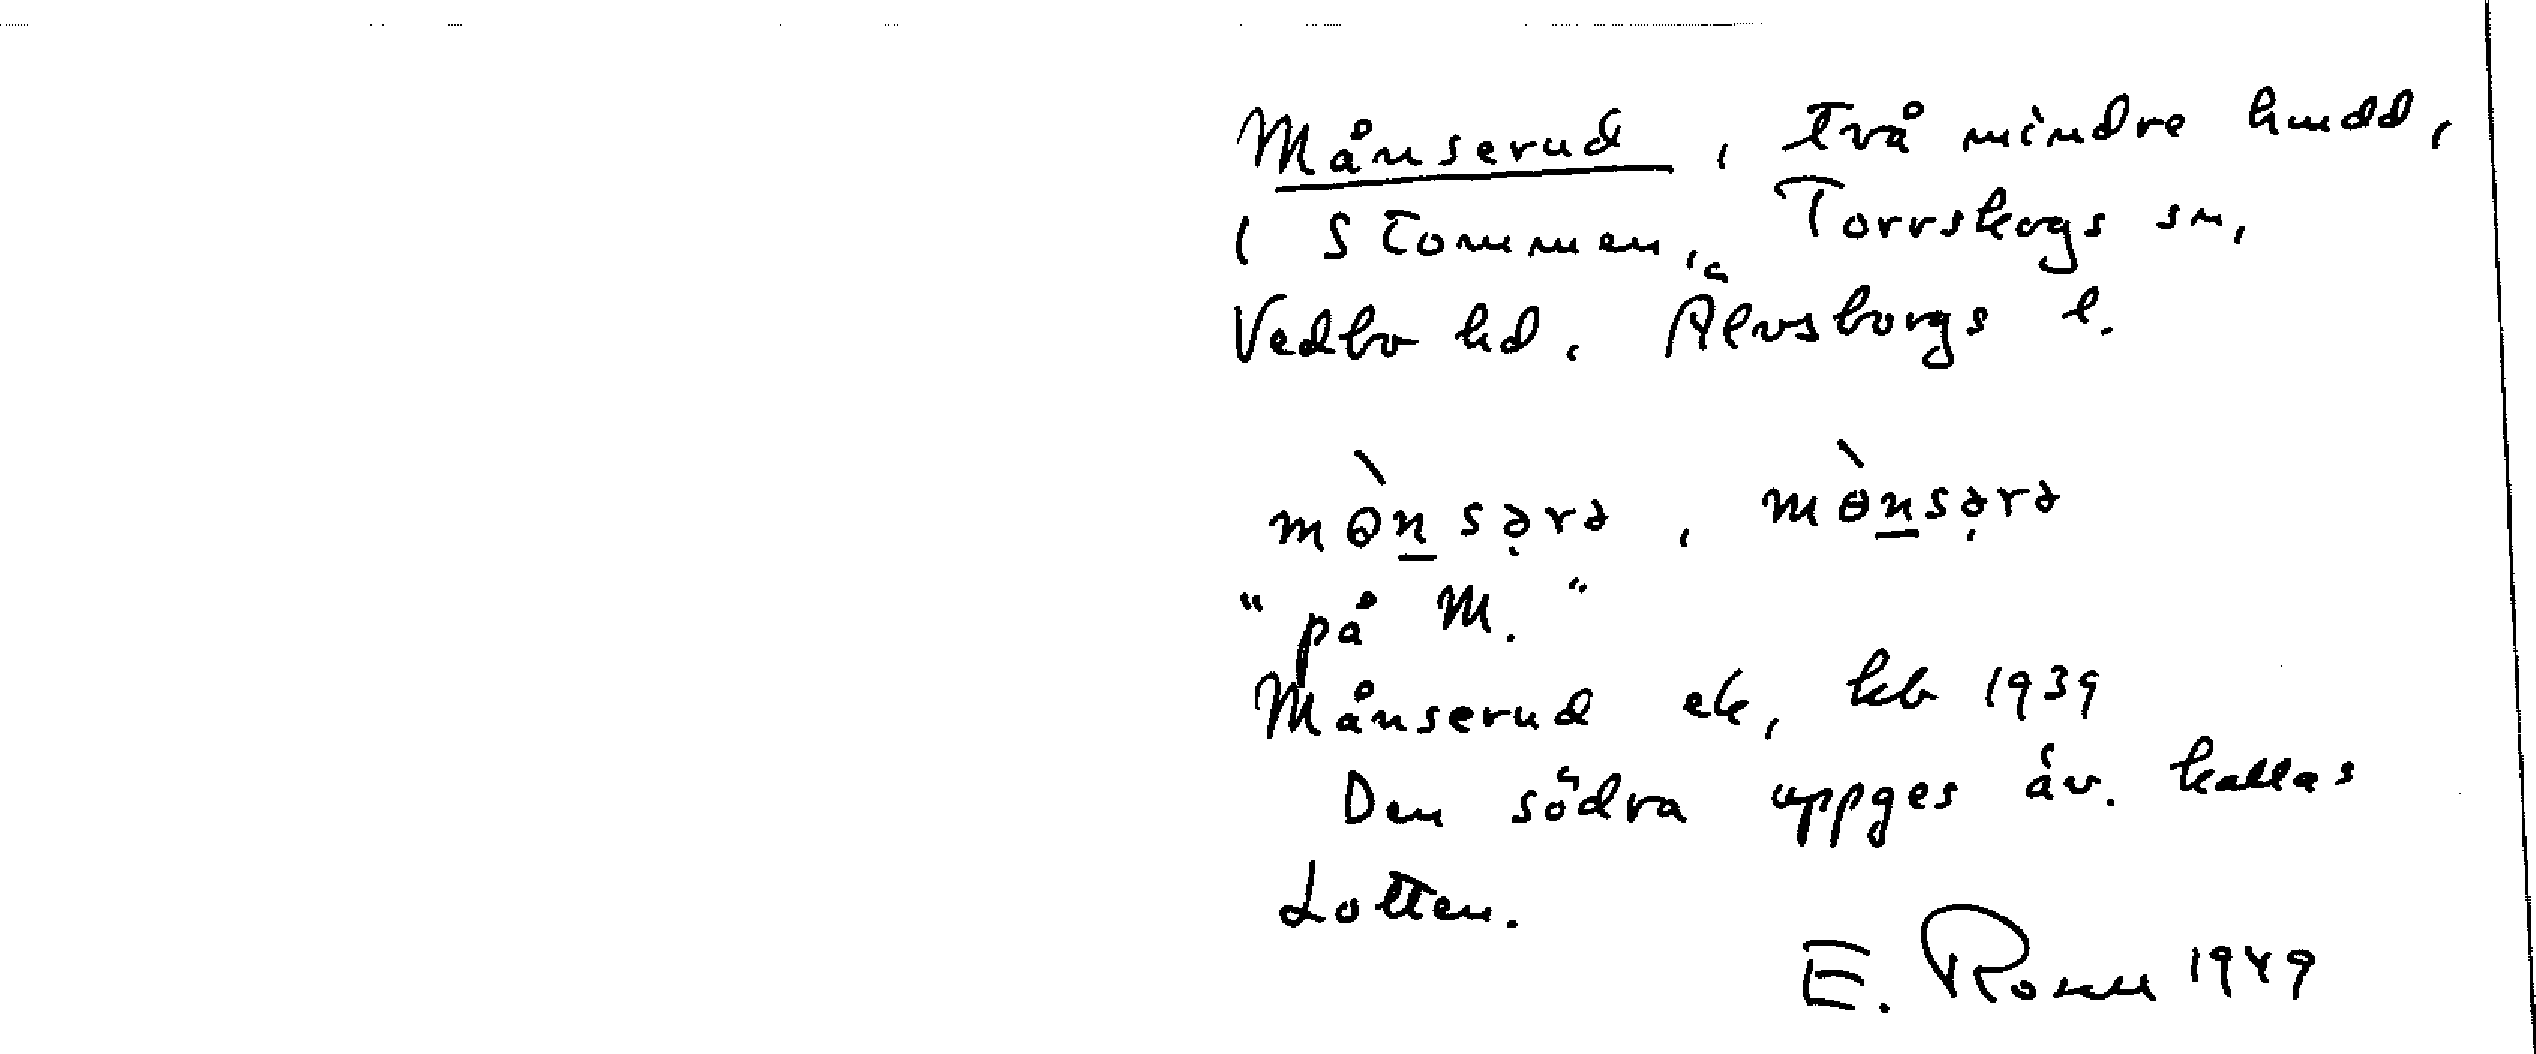 Månserud, två mindre hmdd,
i Stommen, Torrskogs sn,
Vedbo hd, Älvsborgs l.
mɵ̀n̲sə̣rə, mɵ̀n̲sə̣rə
"på M."
Månserud ek, kb 1939
Den södra uppges äv. kallas
Lotten.
E. 1949